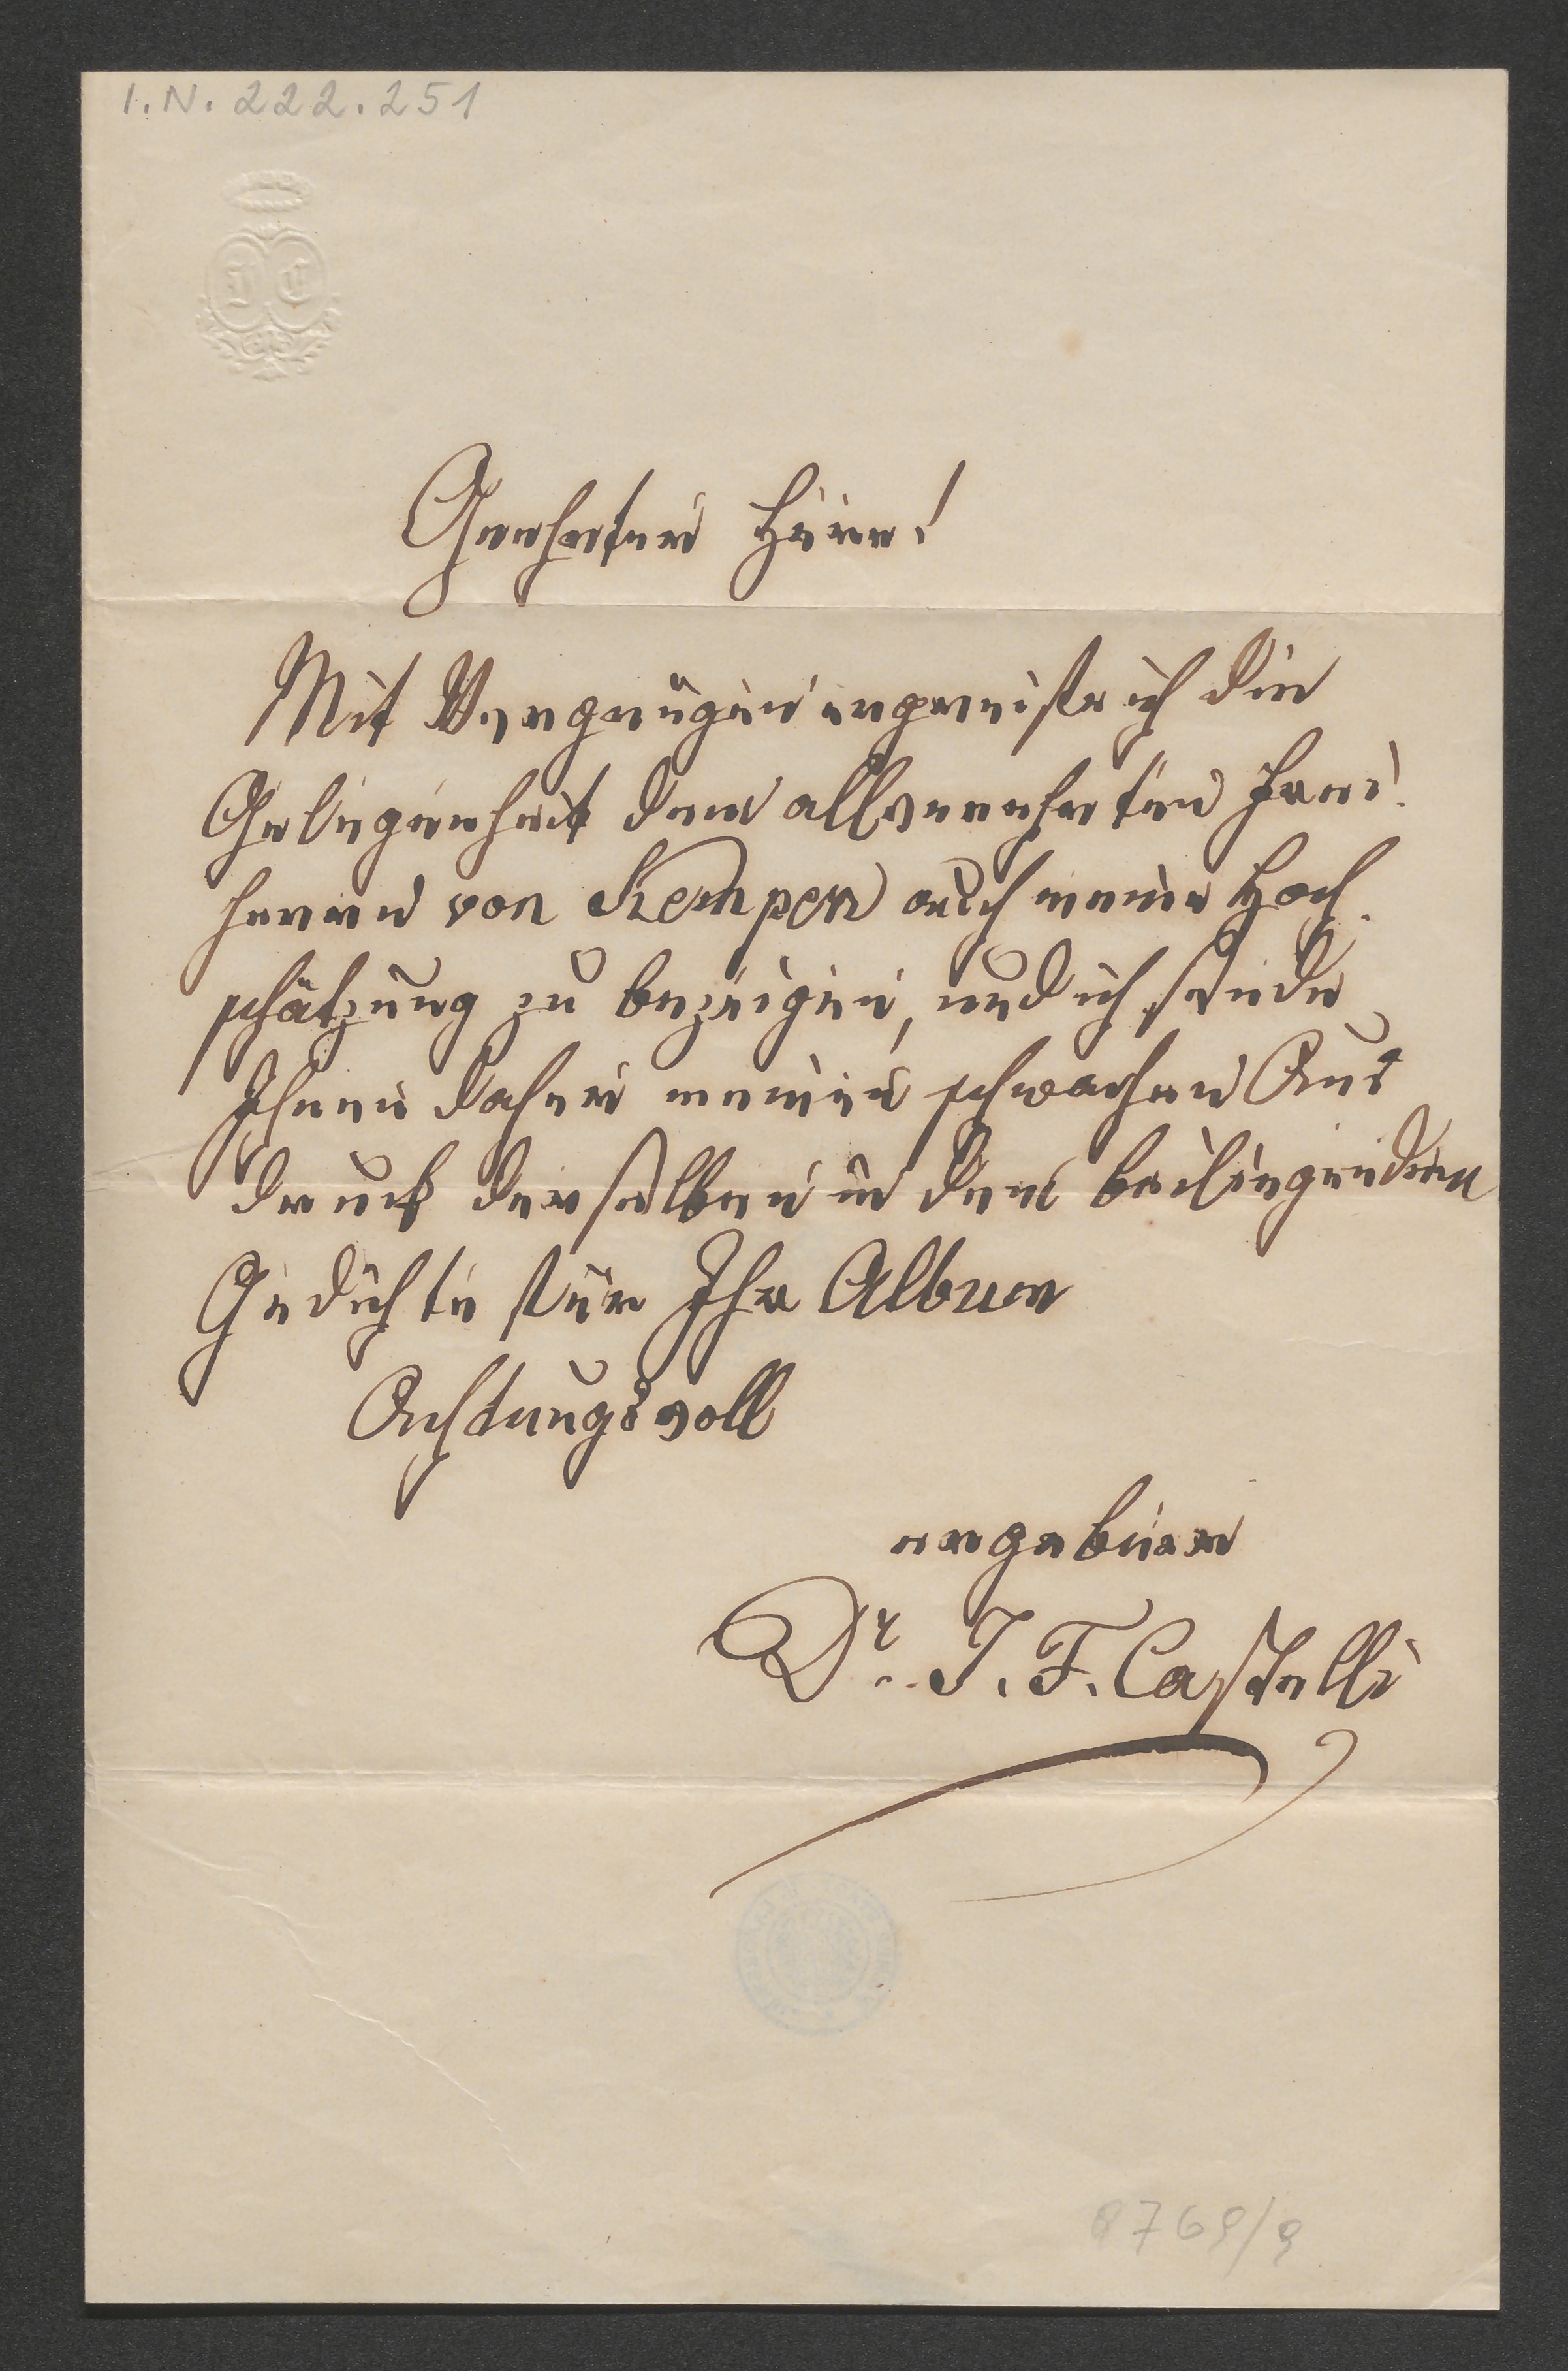 I.N. 222.251
J C
Geehrter Herr!
Mit Vergnügen ergreife ich die
Gelegenheit dem allverehrten Frei-
herrn von Kempen auch meine Hoch-
schätzung zu bezeigen, und ich sende
Ihnen daher meinen schwachen Aus
druck derselben in dem beiliegenden
Gedichte für Ihr Album
Achtungsvoll
ergebener
Dr. J. F. Castelli
8769/9